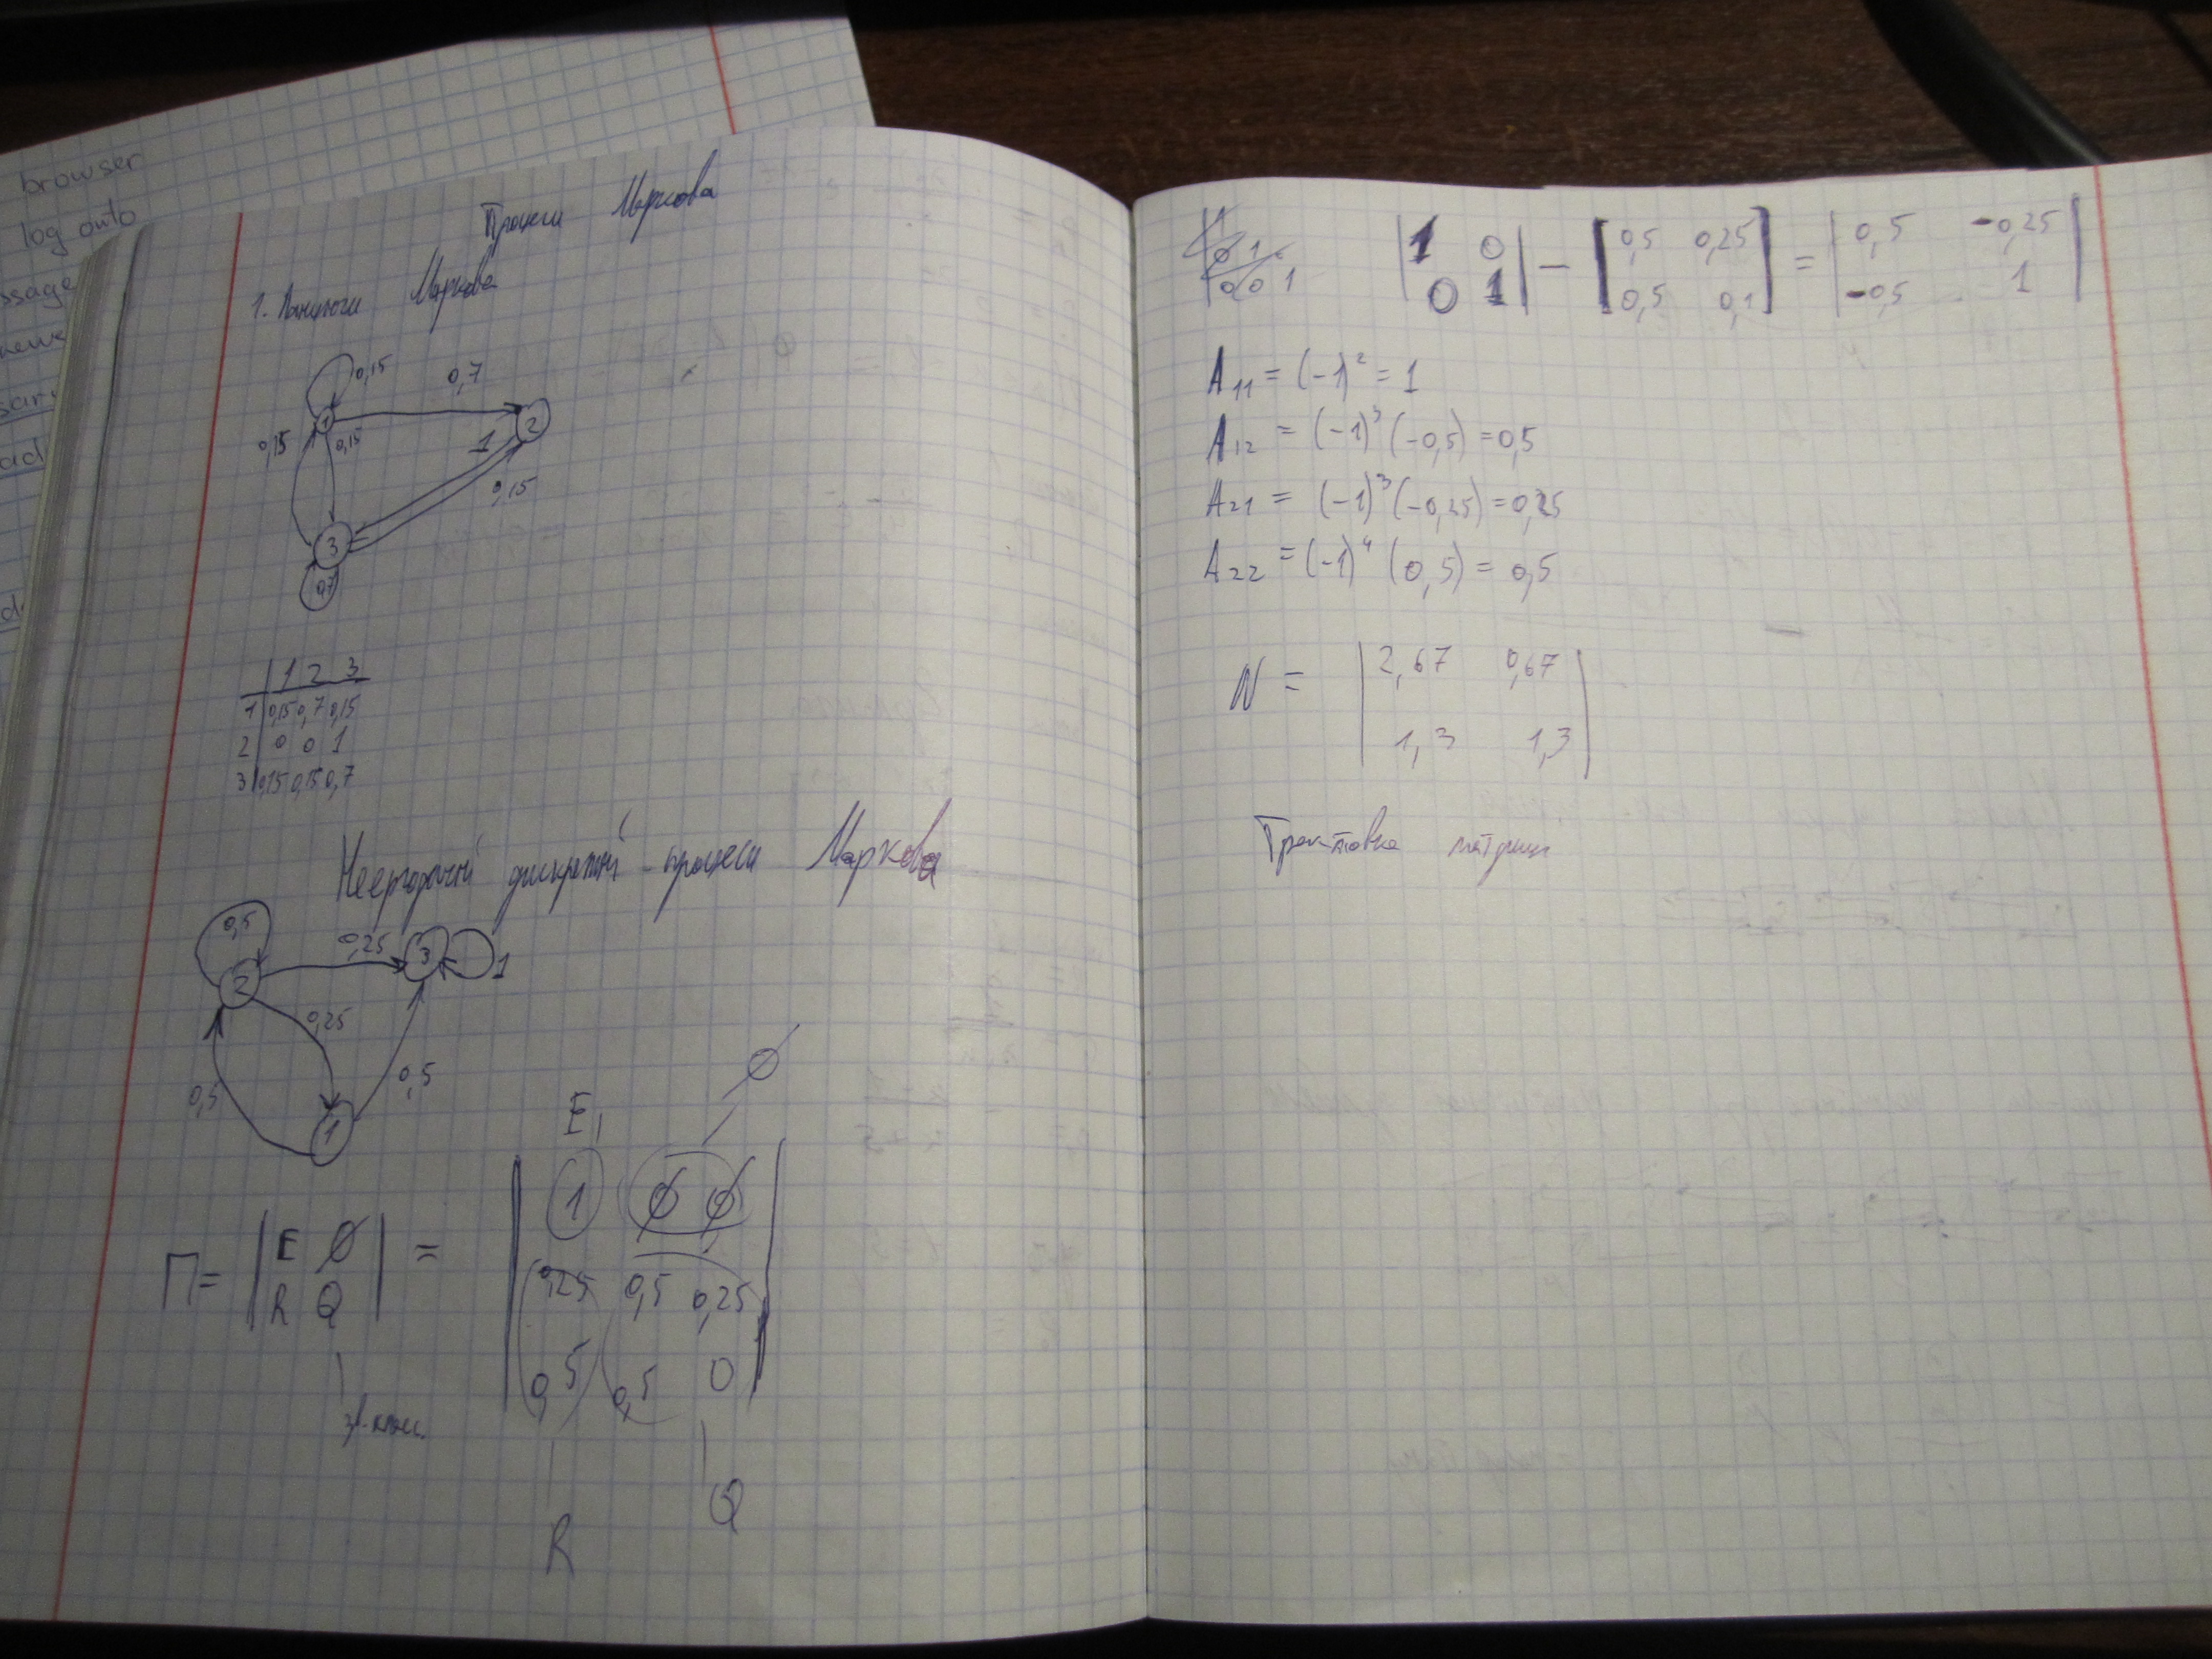 browser
log onto
Процеси Маркова
1. Ланцюги Маркова
0,15
0,7
1
2
0,15
0,15
1
0,15
3
0,7
1 2 3
1 0,15 0,7 0,15
2 0 0 1
3 0,15 0,15 0,7
Неергодичні дискретні процеси Маркова
0,5
0,25
3
1
2
0,25
0,5
0,5
1
E₁
∅
П = | E ∅ | = | 1 ∅ ∅ |
R Q
0,25 0,5 0,25
0,5 0,5 0
R
Q
| 1 0 | − [ 0,5 0,25 ] = | 0,5 -0,25 |
0 1 0,5 0,1 -0,5 1
A₁₁ = (-1)² = 1
A₁₂ = (-1)³ (-0,5) = 0,5
A₂₁ = (-1)³ (-0,25) = 0,25
A₂₂ = (-1)⁴ (0,5) = 0,5
N = | 2,67 0,67 |
1,3 1,3
Трактовка матриці